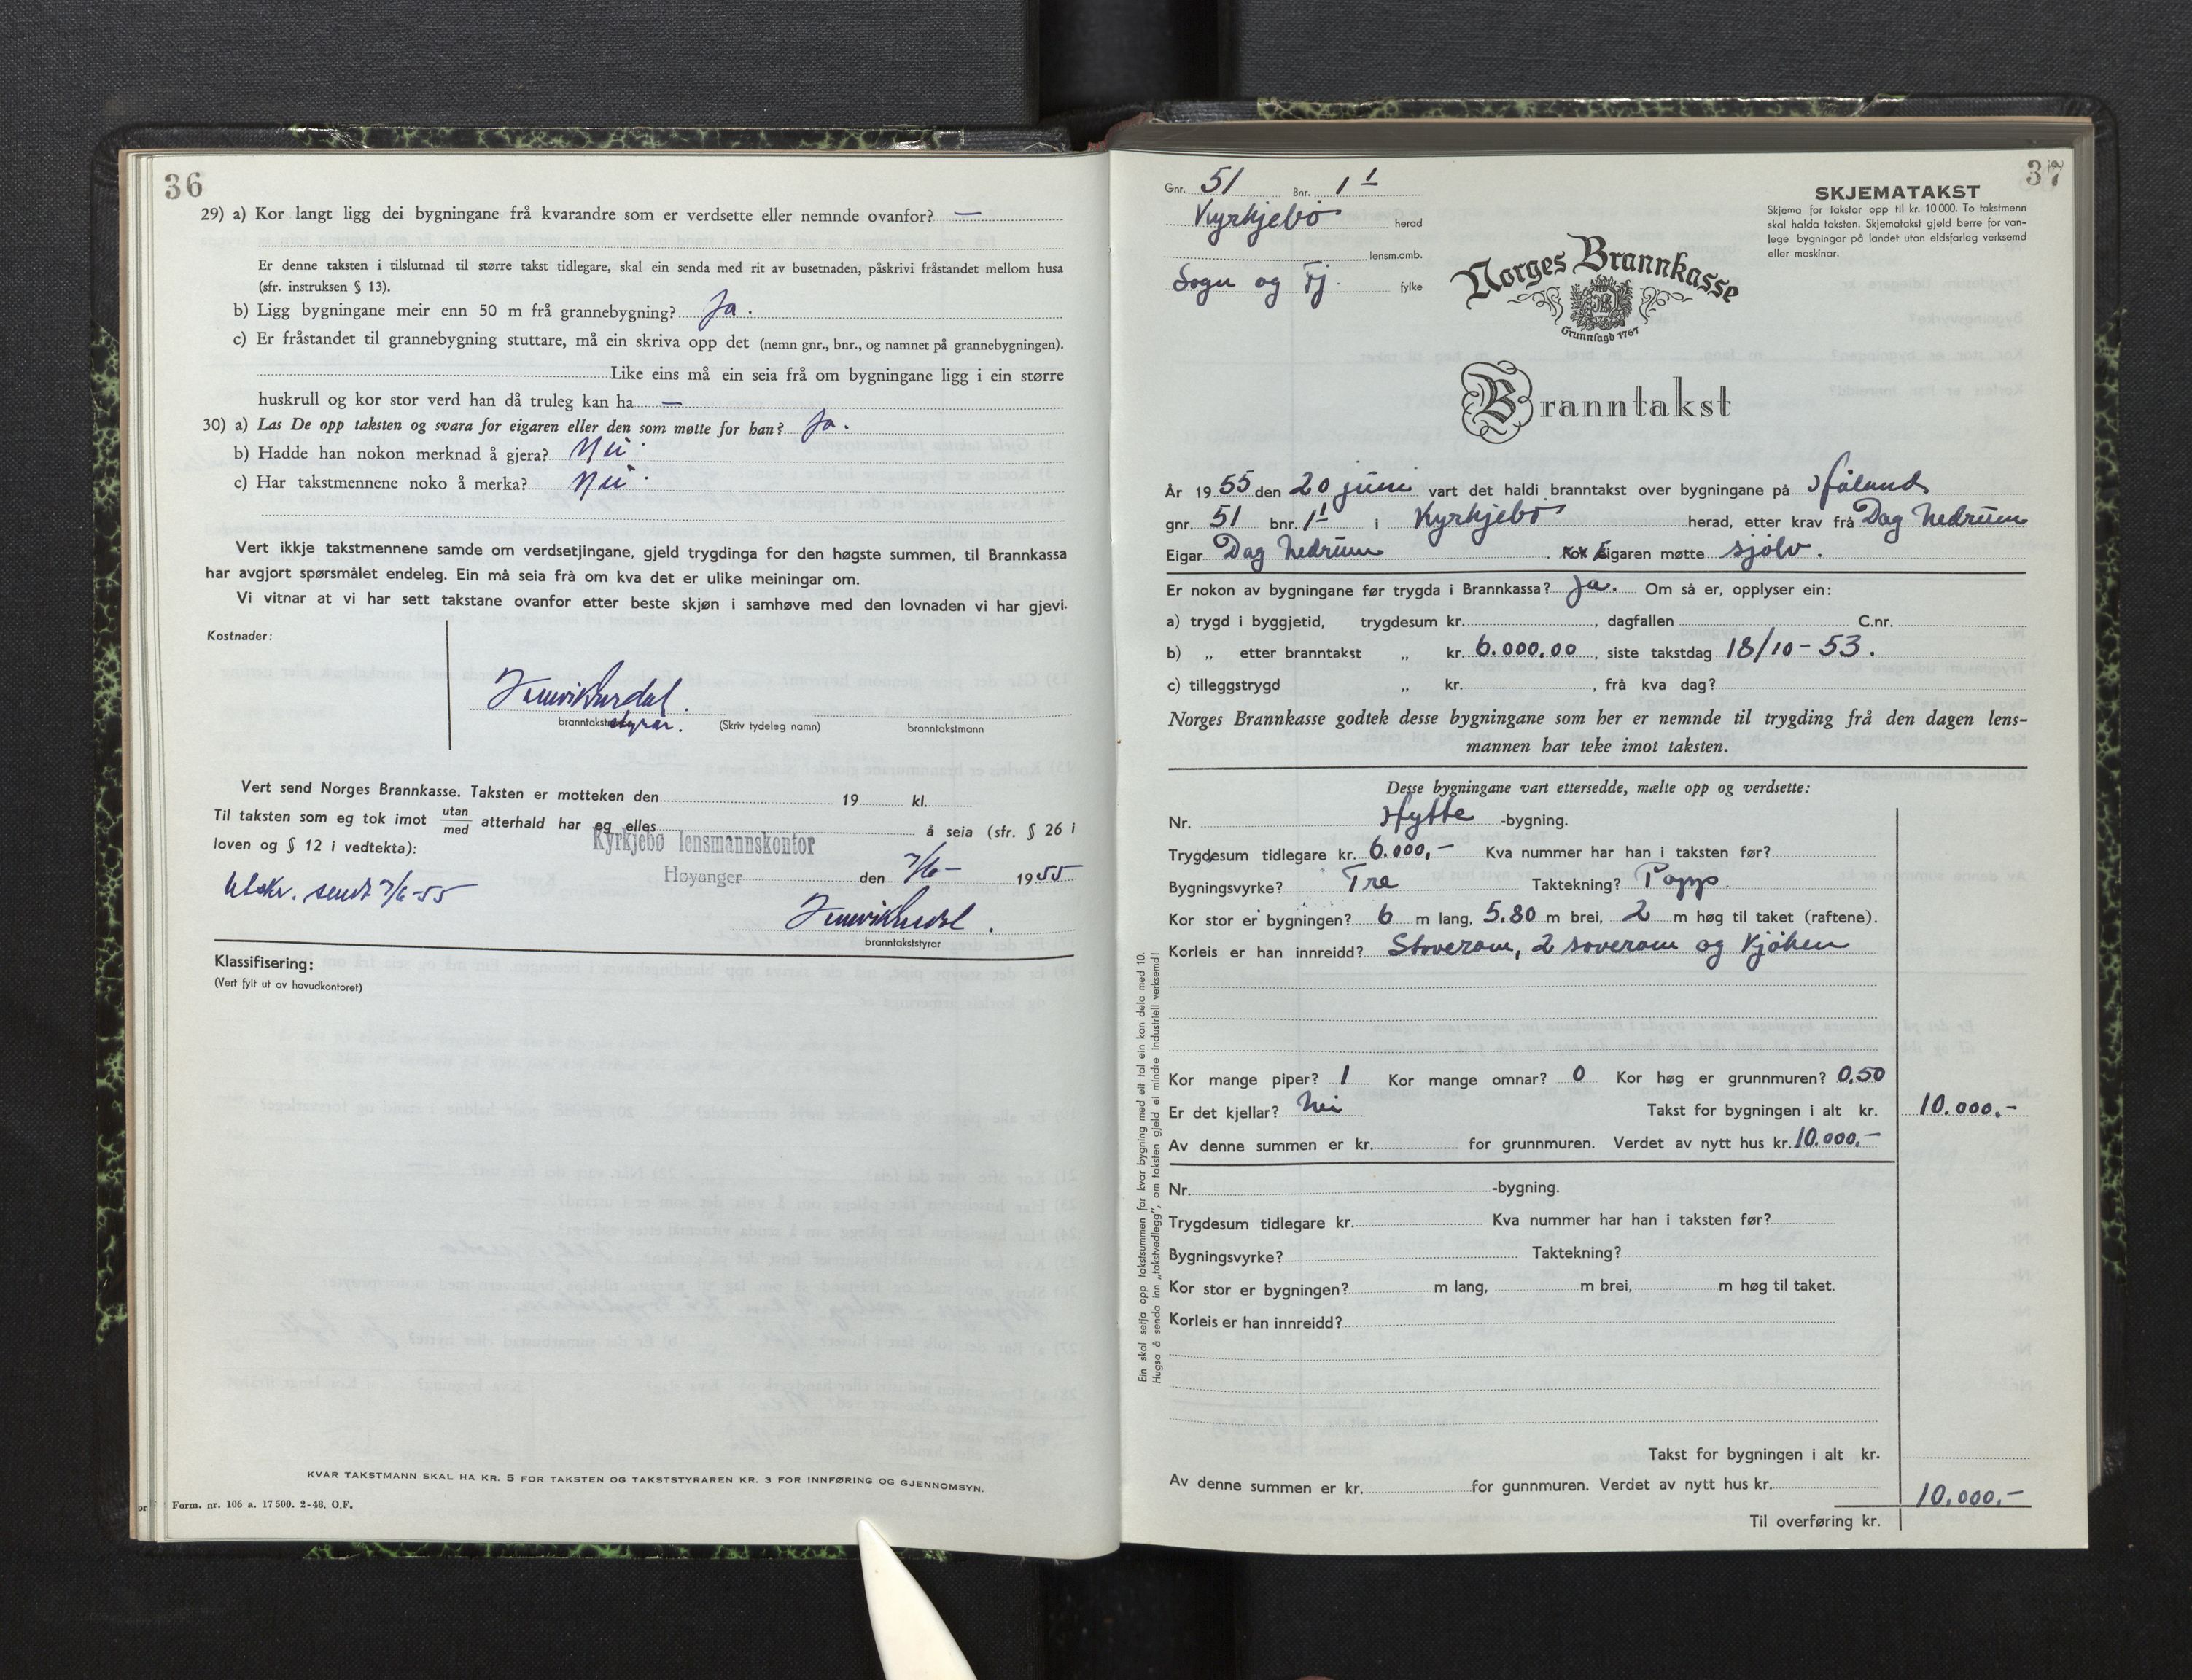 36
29) a) Kor langt ligg dei bygningane frå kvarandre som er verdsette eller nemnde ovanfor? —
Er denne taksten i tilslutnad til større takst tidlegare, skal ein senda med rit av busetnaden, påskrivi fråstandet mellom husa
(sfr. instruksen § 13).
b) Ligg bygningane meir enn 50 m frå grannebygning? Ja.
c) Er fråstandet til grannebygning stuttare, må ein skriva opp det (nemn gnr., bnr., og namnet på grannebygningen).
Like eins må ein seia frå om bygningane ligg i ein større
huskrull og kor stor verd han då truleg kan ha —
30) a) Las De opp taksten og svara for eigaren eller den som møtte for han? Ja.
b) Hadde han nokon merknad å gjera? Nei
c) Har takstmennene noko å merka? Nei
Vert ikkje takstmennene samde om verdsetjingane, gjeld trygdinga for den høgste summen, til Brannkassa
har avgjort spørsmålet endeleg. Ein må seia frå om kva det er ulike meiningar om.
Vi vitnar at vi har sett takstane ovanfor etter beste skjøn i samhøve med den lovnaden vi har gjevi.
Kostnader:
styrar.
(Skriv tydeleg namn) branntakstmann
Vert send Norges Brannkasse. Taksten er motteken den 19 kl.
Til taksten som eg tok imot utan/med atterhald har eg elles å seia (sfr. § 26 i
loven og § 12 i vedtekta):
Kyrkjebø lensmannskontor
Høyanger den 7/6- 1955
Utskr. sendt 7/6-55
branntakststyrar
Klassifisering:
(Vert fylt ut av hovudkontoret)
KVAR TAKSTMANN SKAL HA KR. 5 FOR TAKSTEN OG TAKSTSTYRAREN KR. 3 FOR INNFØRING OG GJENNOMSYN.
Form. nr. 106 a. 17 500. 2-48. O.F.
37
Gnr. 51 Bnr. 1 1
Kyrkjebø herad
lensm.omb.
Sogn og Fj. fylke
SKJEMATAKST
Skjema for takstar opp til kr. 10 000. To takstmenn
skal halda taksten. Skjematakst gjeld berre for van-
lege bygningar på landet utan eldsfarleg verksemd
eller maskinar.
Norges Brannkasse
Grunnlagd 1767
Branntakst
År 1955 den 20 juni vart det haldi branntakst over bygningane på
gnr. 51 bnr. 1 1 i Kyrkjebø herad, etter krav frå Dag Nedrum
Eigar Dag Nedrum. Eigaren møtte sjølv.
Er nokon av bygningane før trygda i Brannkassa? Ja. Om så er, opplyser ein:
a) trygd i byggjetid, trygdesum kr. , dagfallen C.nr.
b) „ etter branntakst „ kr. 6.000.00, siste takstdag 18/10-53.
c) tilleggstrygd „ kr. , frå kva dag?
Norges Brannkasse godtek desse bygningane som her er nemnde til trygding frå den dagen lens-
mannen har teke imot taksten.
Desse bygningane vart ettersedde, mælte opp og verdsette:
Nr. Hytte -bygning.
Trygdesum tidlegare kr. 6.000,- Kva nummer har han i taksten før?
Bygningsvyrke? Tre Taktekning? Papp
Kor stor er bygningen? 6 m lang, 5.80 m brei, 2 m høg til taket (raftene).
Korleis er han innreidd? Stoverom, 2 soverom og kjøken
Kor mange piper? 1 Kor mange omnar? 0 Kor høg er grunnmuren? 0.50
Er det kjellar? Nei Takst for bygningen i alt kr. 10.000.-
Av denne summen er kr. for grunnmuren. Verdet av nytt hus kr. 10.000,-
Nr. -bygning.
Trygdesum tidlegare kr. Kva nummer har han i taksten før?
Bygningsvyrke? Taktekning?
Kor stor er bygningen? m lang, m brei, m høg til taket.
Korleis er han innreidd?
Takst for bygningen i alt kr.
Av denne summen er kr. for gunnmuren. Verdet av nytt hus kr.
10.000,-
Til overføring kr.
Ein skal setja opp takstsummen for kvar bygning med eit tal ein kan dela med 10.
Hugsa å senda inn „takstvedlegg", om taksten gjeld ei mindre industriell verksemd!